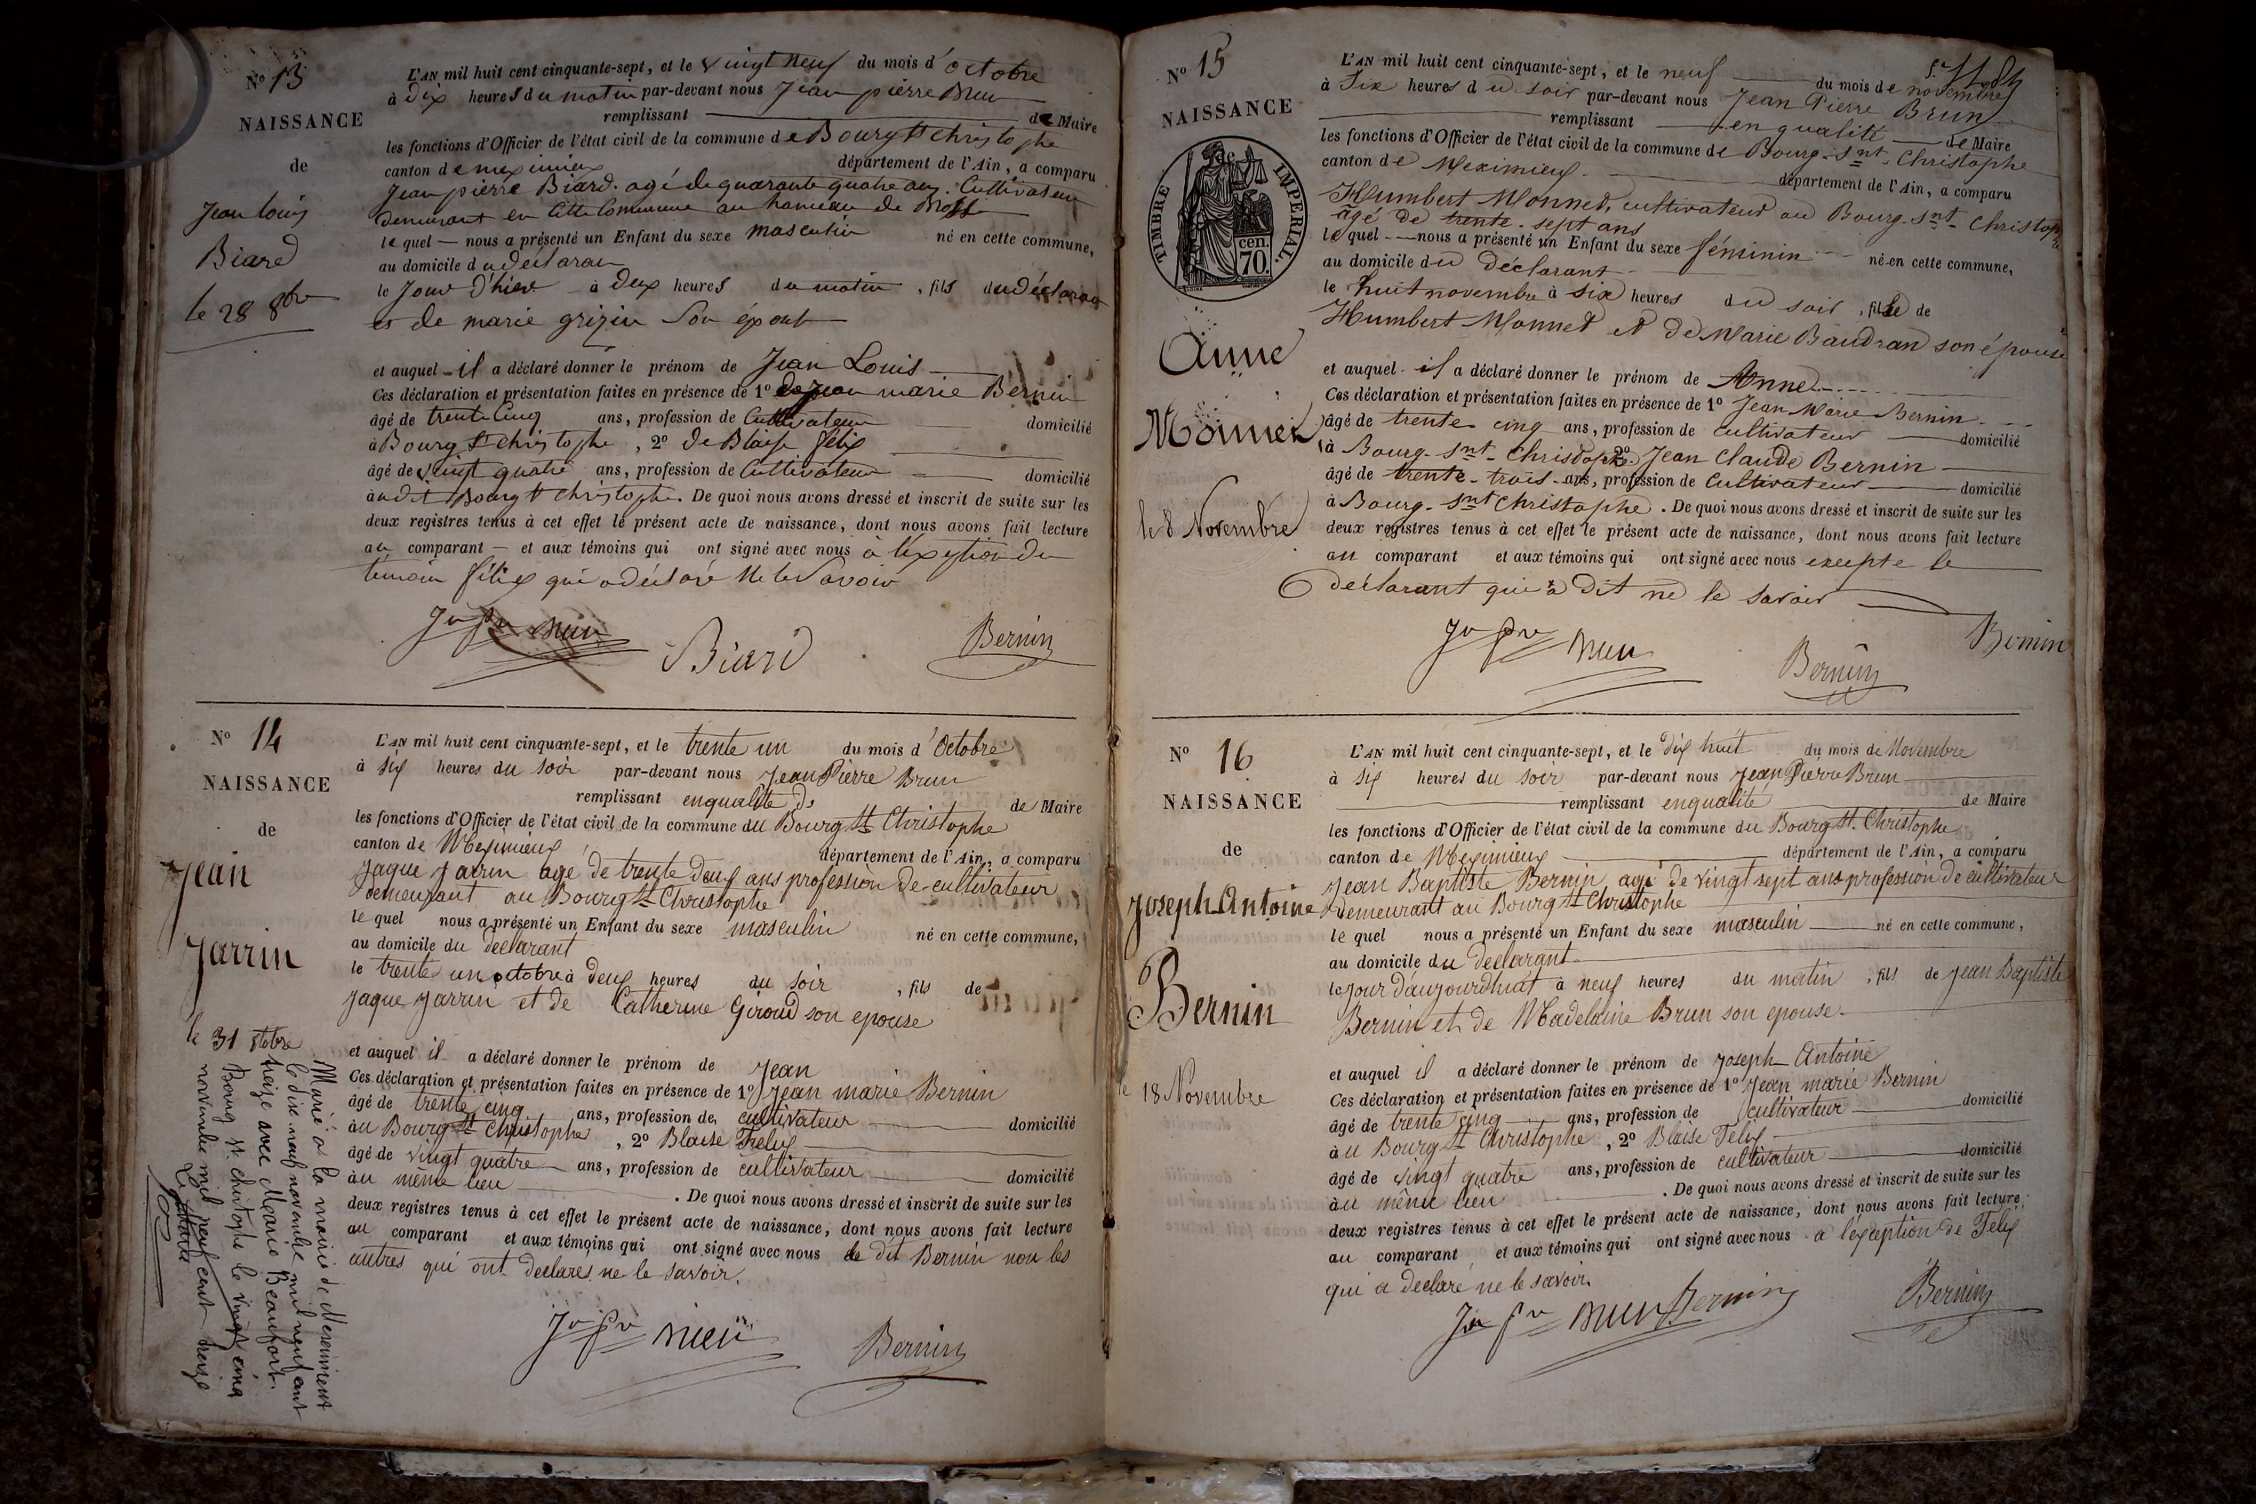 N° 13
NAISSANCE
de
Jean Louis
Biard
le 28 8bre
L'AN mil huit cent cinquante-sept, et le vingt neuf du mois d'Octobre
à dix heures du matin par-devant nous Jean pierre Brun
remplissant de Maire
les fonctions d'Officier de l'état civil de la commune de Bourg St Christophe
canton de meximieux département de l'Ain, a comparu
Jean pierre Biard. agé de quarante quatre ans. Cultivateur
demeurant en cette Commune au hameau de
le quel — nous a présenté un Enfant du sexe masculin né en cette commune,
au domicile du declaran
le Jour d'hier à deux heures du matin, fils du déclarant
et de marie grizin Son épous
et auquel il a déclaré donner le prénom de Jean Louis
Ces déclaration et présentation faites en présence de 1° de Jean marie Bernin
âgé de trente Cinq ans, profession de Cultivateur domicilié
à Bourg St Christophe, 2° de Blaise félix
âgé de vingt quatre ans, profession de Cultivateur domicilié
audit Bourg St Christophe. De quoi nous avons dressé et inscrit de suite sur les
deux registres tenus à cet effet le présent acte de naissance, dont nous avons fait lecture
au comparant — et aux témoins qui ont signé avec nous à l'exeption du
témoin félix qui a déclaré ne le Savoir
Jn pre Brun
Biard
Bernin
N° 14
NAISSANCE
de
Jean
Jarrin
le 31 8tobre
Marié à la mairie de Meximieux
le dix neuf novembre mil neuf cent
treize avec Marie Beaufort.
Bourg St Christophe le vingt cinq
novembre mil neuf cent treize
L'AN mil huit cent cinquante-sept, et le trente un du mois d'Octobre
à six heures du soir par-devant nous Jean Pierre Brun
remplissant enqualite de de Maire
les fonctions d'Officier de l'état civil de la commune du Bourg St Christophe
canton de Meximieux département de l'Ain, a comparu
Jaque Jarrin agé de trente deux ans profession de cultivateur
demeurant au Bourg St Christophe
le quel nous a présenté un Enfant du sexe masculin né en cette commune,
au domicile du declarant
le trente un octobre à deux heures du soir, fils de
Jaque Jarrin et de Catherine Giroud son epouse
et auquel il a déclaré donner le prénom de Jean
Ces déclaration et présentation faites en présence de 1° Jean marie Bernin
âgé de trente cinq ans, profession de cultivateur domicilié
au Bourg St Christophe, 2° Blaise Felix
âgé de vingt quatre ans, profession de cultivateur domicilié
au même lieu. De quoi nous avons dressé et inscrit de suite sur les
deux registres tenus à cet effet le présent acte de naissance, dont nous avons fait lecture
au comparant et aux témoins qui ont signé avec nous le dit Bernin non les
autres qui ont declares ne le savoir.
Jn pre Brun
Bernin
N° 15
NAISSANCE
TIMBRE IMPERIAL.
70 cen.
Anne
Monnet
le 8 Novembre
L'AN mil huit cent cinquante-sept, et le neuf du mois de novembre
à Six heures du soir par-devant nous Jean Pierre Brun
remplissant en qualité de Maire
les fonctions d'Officier de l'état civil de la commune de Bourg-Snt-Christophe
canton de Meximieux. département de l'Ain, a comparu
Humbert Monnet, cultivateur au Bourg-Snt-Christophe
âgé de trente-sept ans
le quel nous a présenté un Enfant du sexe féminin né en cette commune,
au domicile du déclarant
le huit novembre à six heures du soir, fille de
Humbert Monnet et de Marie Baudrand son épouse
et auquel il a déclaré donner le prénom de Anne
Ces déclaration et présentation faites en présence de 1° Jean-Marie Bernin
âgé de trente cinq ans, profession de cultivateur domicilié
à Bourg-Snt-Christophe 2° Jean Claude Bernin
âgé de trente-trois ans, profession de Cultivateur domicilié
à Bourg-Snt Christophe. De quoi nous avons dressé et inscrit de suite sur les
deux registres tenus à cet effet le présent acte de naissance, dont nous avons fait lecture
au comparant et aux témoins qui ont signé avec nous excepte le
déclarant qui a dit ne le savoir
Jn pre Brun
Bernin
Bernin
N° 16
NAISSANCE
de
Joseph Antoine
Bernin
le 18 Novembre
L'AN mil huit cent cinquante-sept, et le dix huit du mois de Novembre
à six heures du soir par-devant nous Jean Pierre Brun
remplissant enqualité de Maire
les fonctions d'Officier de l'état civil de la commune du Bourg St Christophe
canton de Meximieux département de l'Ain, a comparu
Jean Baptiste Bernin agé de vingt sept ans profession de cultivateur
demeurant au Bourg St Christophe
le quel nous a présenté un Enfant du sexe masculin né en cette commune,
au domicile du declarant
le jour d'aujourdhuit à neuf heures du matin, fils de Jean Baptiste
Bernin et de Madelaine Brun son epouse
et auquel il a déclaré donner le prénom de Joseph Antoine
Ces déclaration et présentation faites en présence de 1° Jean marie Bernin
âgé de trente cinq ans, profession de cultivateur domicilié
au Bourg St Christophe, 2° Blaise Felix
âgé de vingt quatre ans, profession de cultivateur domicilié
au même lieu. De quoi nous avons dressé et inscrit de suite sur les
deux registres tenus à cet effet le présent acte de naissance, dont nous avons fait lecture
au comparant et aux témoins qui ont signé avec nous a l'éxception de Felix
qui a declaré ne le savoir.
Jn pre Brun
Bernin
Bernin